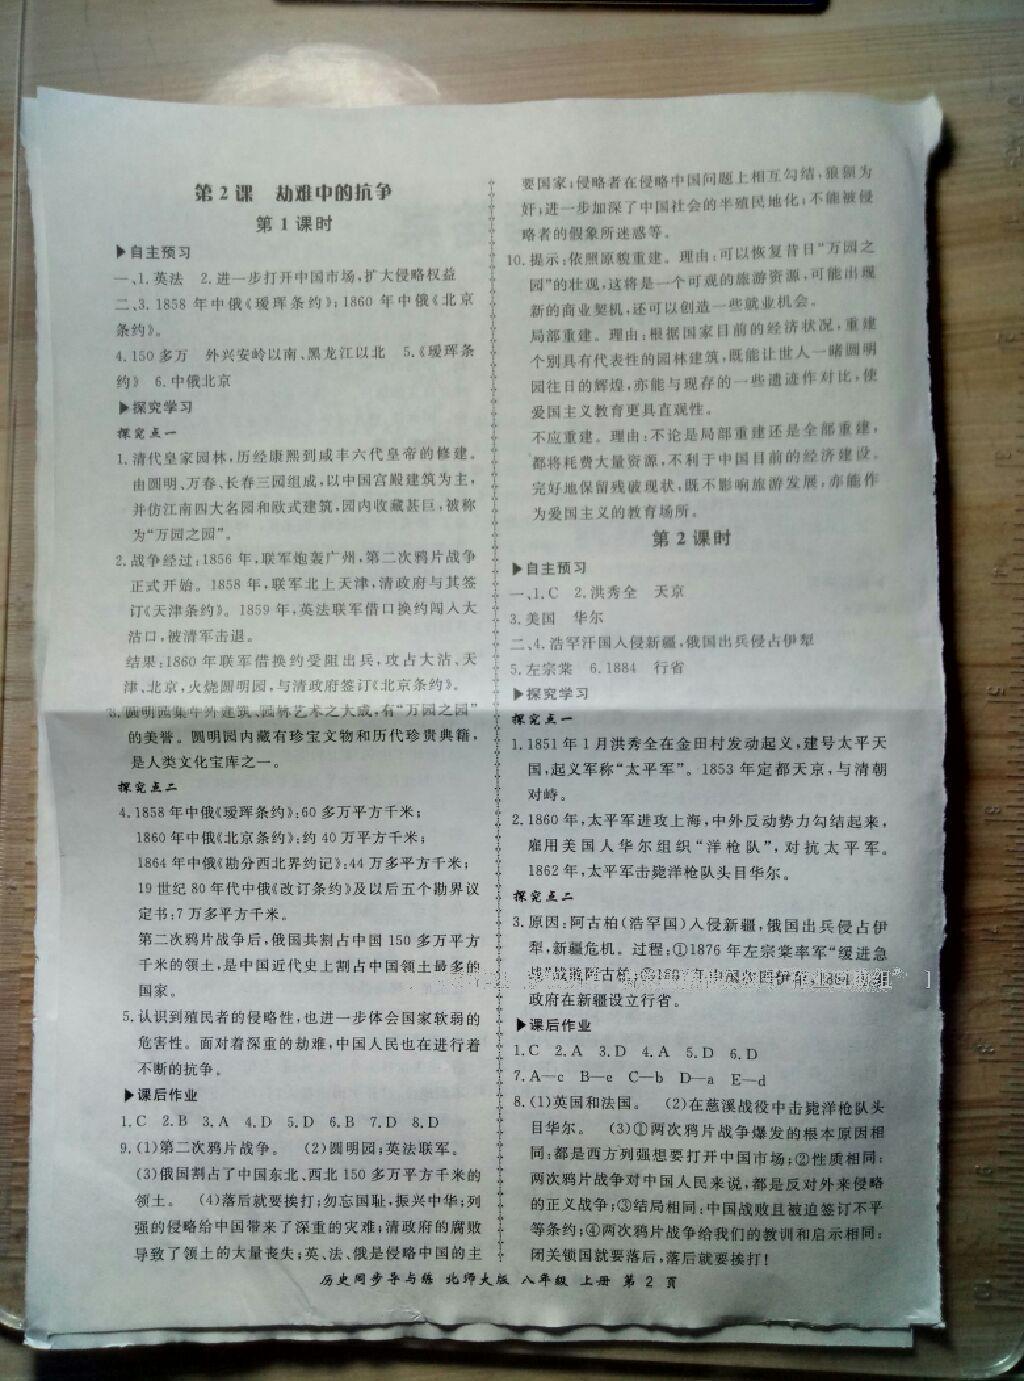 第2课 劫难中的抗争
第1课时
▶自主预习
一、1.英法 2.进一步打开中国市场,扩大侵略权益
二、3.1858年中俄《瑷珲条约》;1860年中俄《北京
条约》。
4.150多万 外兴安岭以南、黑龙江以北 5.《瑷珲条
约》 6.中俄北京
▶探究学习
探究点一
1.清代皇家园林,历经康熙到咸丰六代皇帝的修建。
由圆明、万春、长春三园组成,以中国宫殿建筑为主,
并仿江南四大名园和欧式建筑,园内收藏甚巨,被称
为“万园之园”。
2.战争经过:1856年,联军炮轰广州,第二次鸦片战争
正式开始。1858年,联军北上天津,清政府与其签
订《天津条约》。1859年,英法联军借口换约闯入大
沽口,被清军击退。
结果:1860年联军借换约受阻出兵,攻占大沽、天
津、北京,火烧圆明园,与清政府签订《北京条约》。
3.圆明园集中外建筑、园林艺术之大成,有“万园之园”
的美誉。圆明园内藏有珍宝文物和历代珍贵典籍,
是人类文化宝库之一。
探究点二
4.1858年中俄《瑷珲条约》:60多万平方千米;
1860年中俄《北京条约》:约40万平方千米;
1864年中俄《勘分西北界约记》:44万多平方千米;
19世纪80年代中俄《改订条约》及以后五个勘界议
定书:7万多平方千米。
第二次鸦片战争后,俄国共割占中国150多万平方
千米的领土,是中国近代史上割占中国领土最多的
国家。
5.认识到殖民者的侵略性,也进一步体会国家软弱的
危害性。面对着深重的劫难,中国人民也在进行着
不断的抗争。
▶课后作业
1.C 2.B 3.A 4.D 5.D 6.B 7.D 8.D
9.(1)第二次鸦片战争。 (2)圆明园;英法联军。
(3)俄国割占了中国东北、西北150多万平方千米的
领土。 (4)落后就要挨打;勿忘国耻,振兴中华;列
强的侵略给中国带来了深重的灾难;清政府的腐败
导致了领土的大量丧失;英、法、俄是侵略中国的主
要国家;侵略者在侵略中国问题上相互勾结,狼狈为
奸;进一步加深了中国社会的半殖民地化;不能被侵
略者的假象所迷惑等。
10.提示:依照原貌重建。理由:可以恢复昔日“万园之
园”的壮观,这将是一个可观的旅游资源,可能出现
新的商业契机,还可以创造一些就业机会。
局部重建。理由:根据国家目前的经济状况,重建
个别具有代表性的园林建筑,既能让世人一睹圆明
园往日的辉煌,亦能与现存的一些遗迹作对比,使
爱国主义教育更具直观性。
不应重建。理由:不论是局部重建还是全部重建,
都将耗费大量资源,不利于中国目前的经济建设。
完好地保留残破现状,既不影响旅游发展,亦能作
为爱国主义的教育场所。
第2课时
▶自主预习
一、1.C 2.洪秀全 天京
3.美国 华尔
二、4.浩罕汗国入侵新疆,俄国出兵侵占伊犁
5.左宗棠 6.1884 行省
▶探究学习
探究点一
1.1851年1月洪秀全在金田村发动起义,建号太平天
国,起义军称“太平军”。1853年定都天京,与清朝
对峙。
2.1860年,太平军进攻上海,中外反动势力勾结起来,
雇用美国人华尔组织“洋枪队”,对抗太平军。
1862年,太平军击毙洋枪队头目华尔。
探究点二
3.原因:阿古柏(浩罕国)入侵新疆,俄国出兵侵占伊
犁,新疆危机。过程:①1876年左宗棠率军“缓进急
战”战胜阿古柏
政府在新疆设立行省。
▶课后作业
1.C 2.A 3.D 4.A 5.D 6.D
7.A—c B—e C—b D—a E—d
8.(1)英国和法国。 (2)在慈溪战役中击毙洋枪队头
目华尔。 (3)①两次鸦片战争爆发的根本原因相
同:都是西方列强想要打开中国市场;②性质相同:
两次鸦片战争对中国人民来说,都是反对外来侵略
的正义战争;③结局相同:中国战败且被迫签订不平
等条约;④两次鸦片战争给我们的教训和启示相同:
闭关锁国就要落后,落后就要挨打!
历史同步导与练 北师大版 八年级 上册 第2页